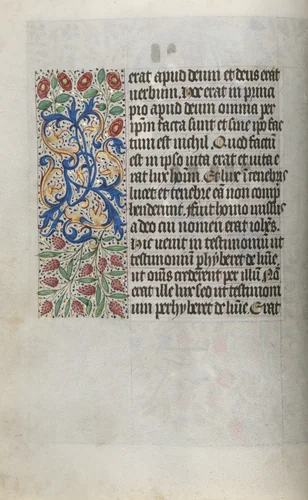 erat apud deum et deus erat
uerbum. Hoc erat in princi
pio apud deum omnia per
ipm facta sunt et sine ipo fac
tum est nichil. Quod factum
est in ipso uita erat et uita e
rat lux homi. Et lux i tenebris
lucet et tenebre ea non comp
henderunt. fuit homo missus
a deo cui nomen erat iohes.
Hic uenit in testimonium ut
testimonium phyberet de lumie,
ut oms crederent per illu. No
erat ille lux sed ut testimoni
um perhyberet de lumie. Erat